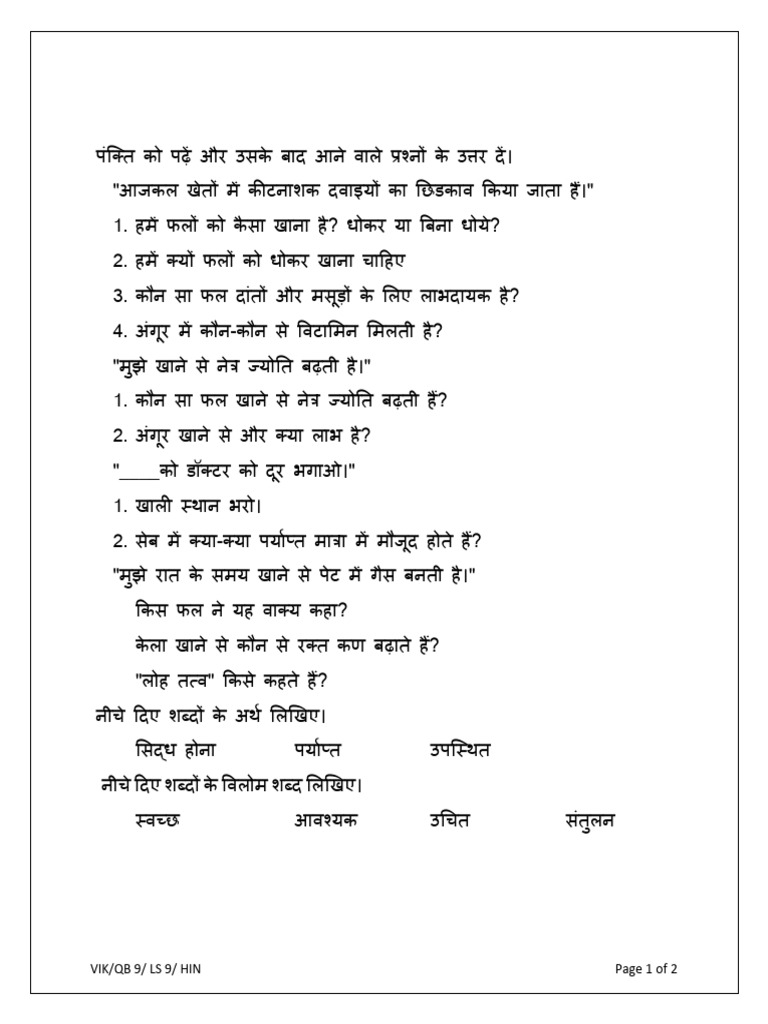 पंक्ति को पढ़ें और उसके बाद आने वाले प्रश्नों के उत्तर दें।
"आजकल खेतों में कीटनाशक दवाइयों का छिडकाव किया जाता हैं।"
1. हमें फलों को कैसा खाना है? धोकर या बिना धोये?
2. हमें क्यों फलों को धोकर खाना चाहिए
3. कौन सा फल दांतों और मसूड़ों के लिए लाभदायक है?
4. अंगूर में कौन-कौन से विटामिन मिलती है?
"मुझे खाने से नेत्र ज्योति बढ़ती है।"
1. कौन सा फल खाने से नेत्र ज्योति बढ़ती हैं?
2. अंगूर खाने से और क्या लाभ है?
"____को डॉक्टर को दूर भगाओ।"
1. खाली स्थान भरो।
2. सेब में क्या-क्या पर्याप्त मात्रा में मौजूद होते हैं?
"मुझे रात के समय खाने से पेट में गैस बनती है।"
किस फल ने यह वाक्य कहा?
केला खाने से कौन से रक्त कण बढ़ाते हैं?
"लोह तत्व" किसे कहते हैं?
नीचे दिए शब्दों के अर्थ लिखिए।
सिद्ध होना पर्याप्त उपस्थित
नीचे दिए शब्दों के विलोम शब्द लिखिए।
स्वच्छ आवश्यक उचित संतुलन
VIK/QB 9/ LS 9/ HIN Page 1 of 2